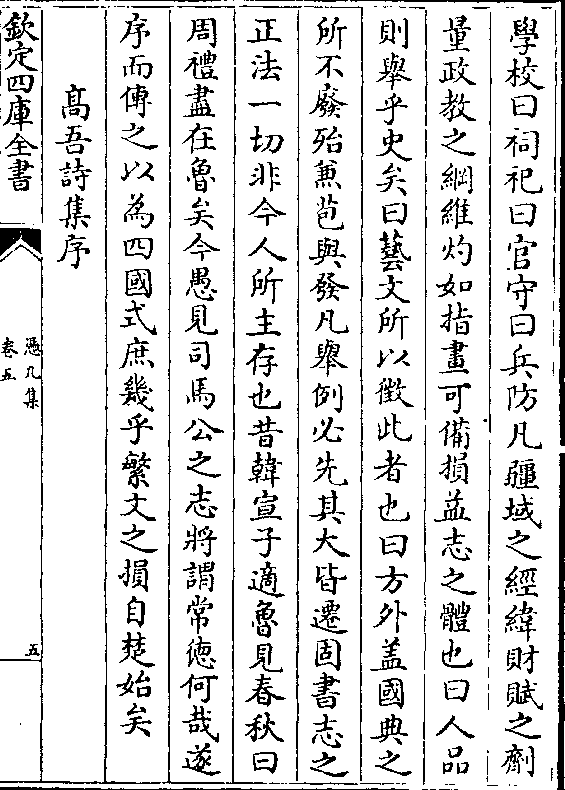 學校曰祠祀曰官守曰兵防凡疆域之經緯財賦之劑
量政教之綱維灼如指畫可備損益志之體也曰人品
則舉乎史矣曰藝文所以徵此者也曰方外盖國典之
所不廢殆兼苞與發凡舉例必先其大皆遷固書志之
正法一切非今人所主存也昔韓宣子適魯見春秋曰
周禮盡在魯矣今愚見司馬公之志將謂常徳何哉遂
序而傳之以為四國式庶幾乎繁文之損自楚始矣
髙吾詩集序
欽定四庫全書
憑几集
卷五
五